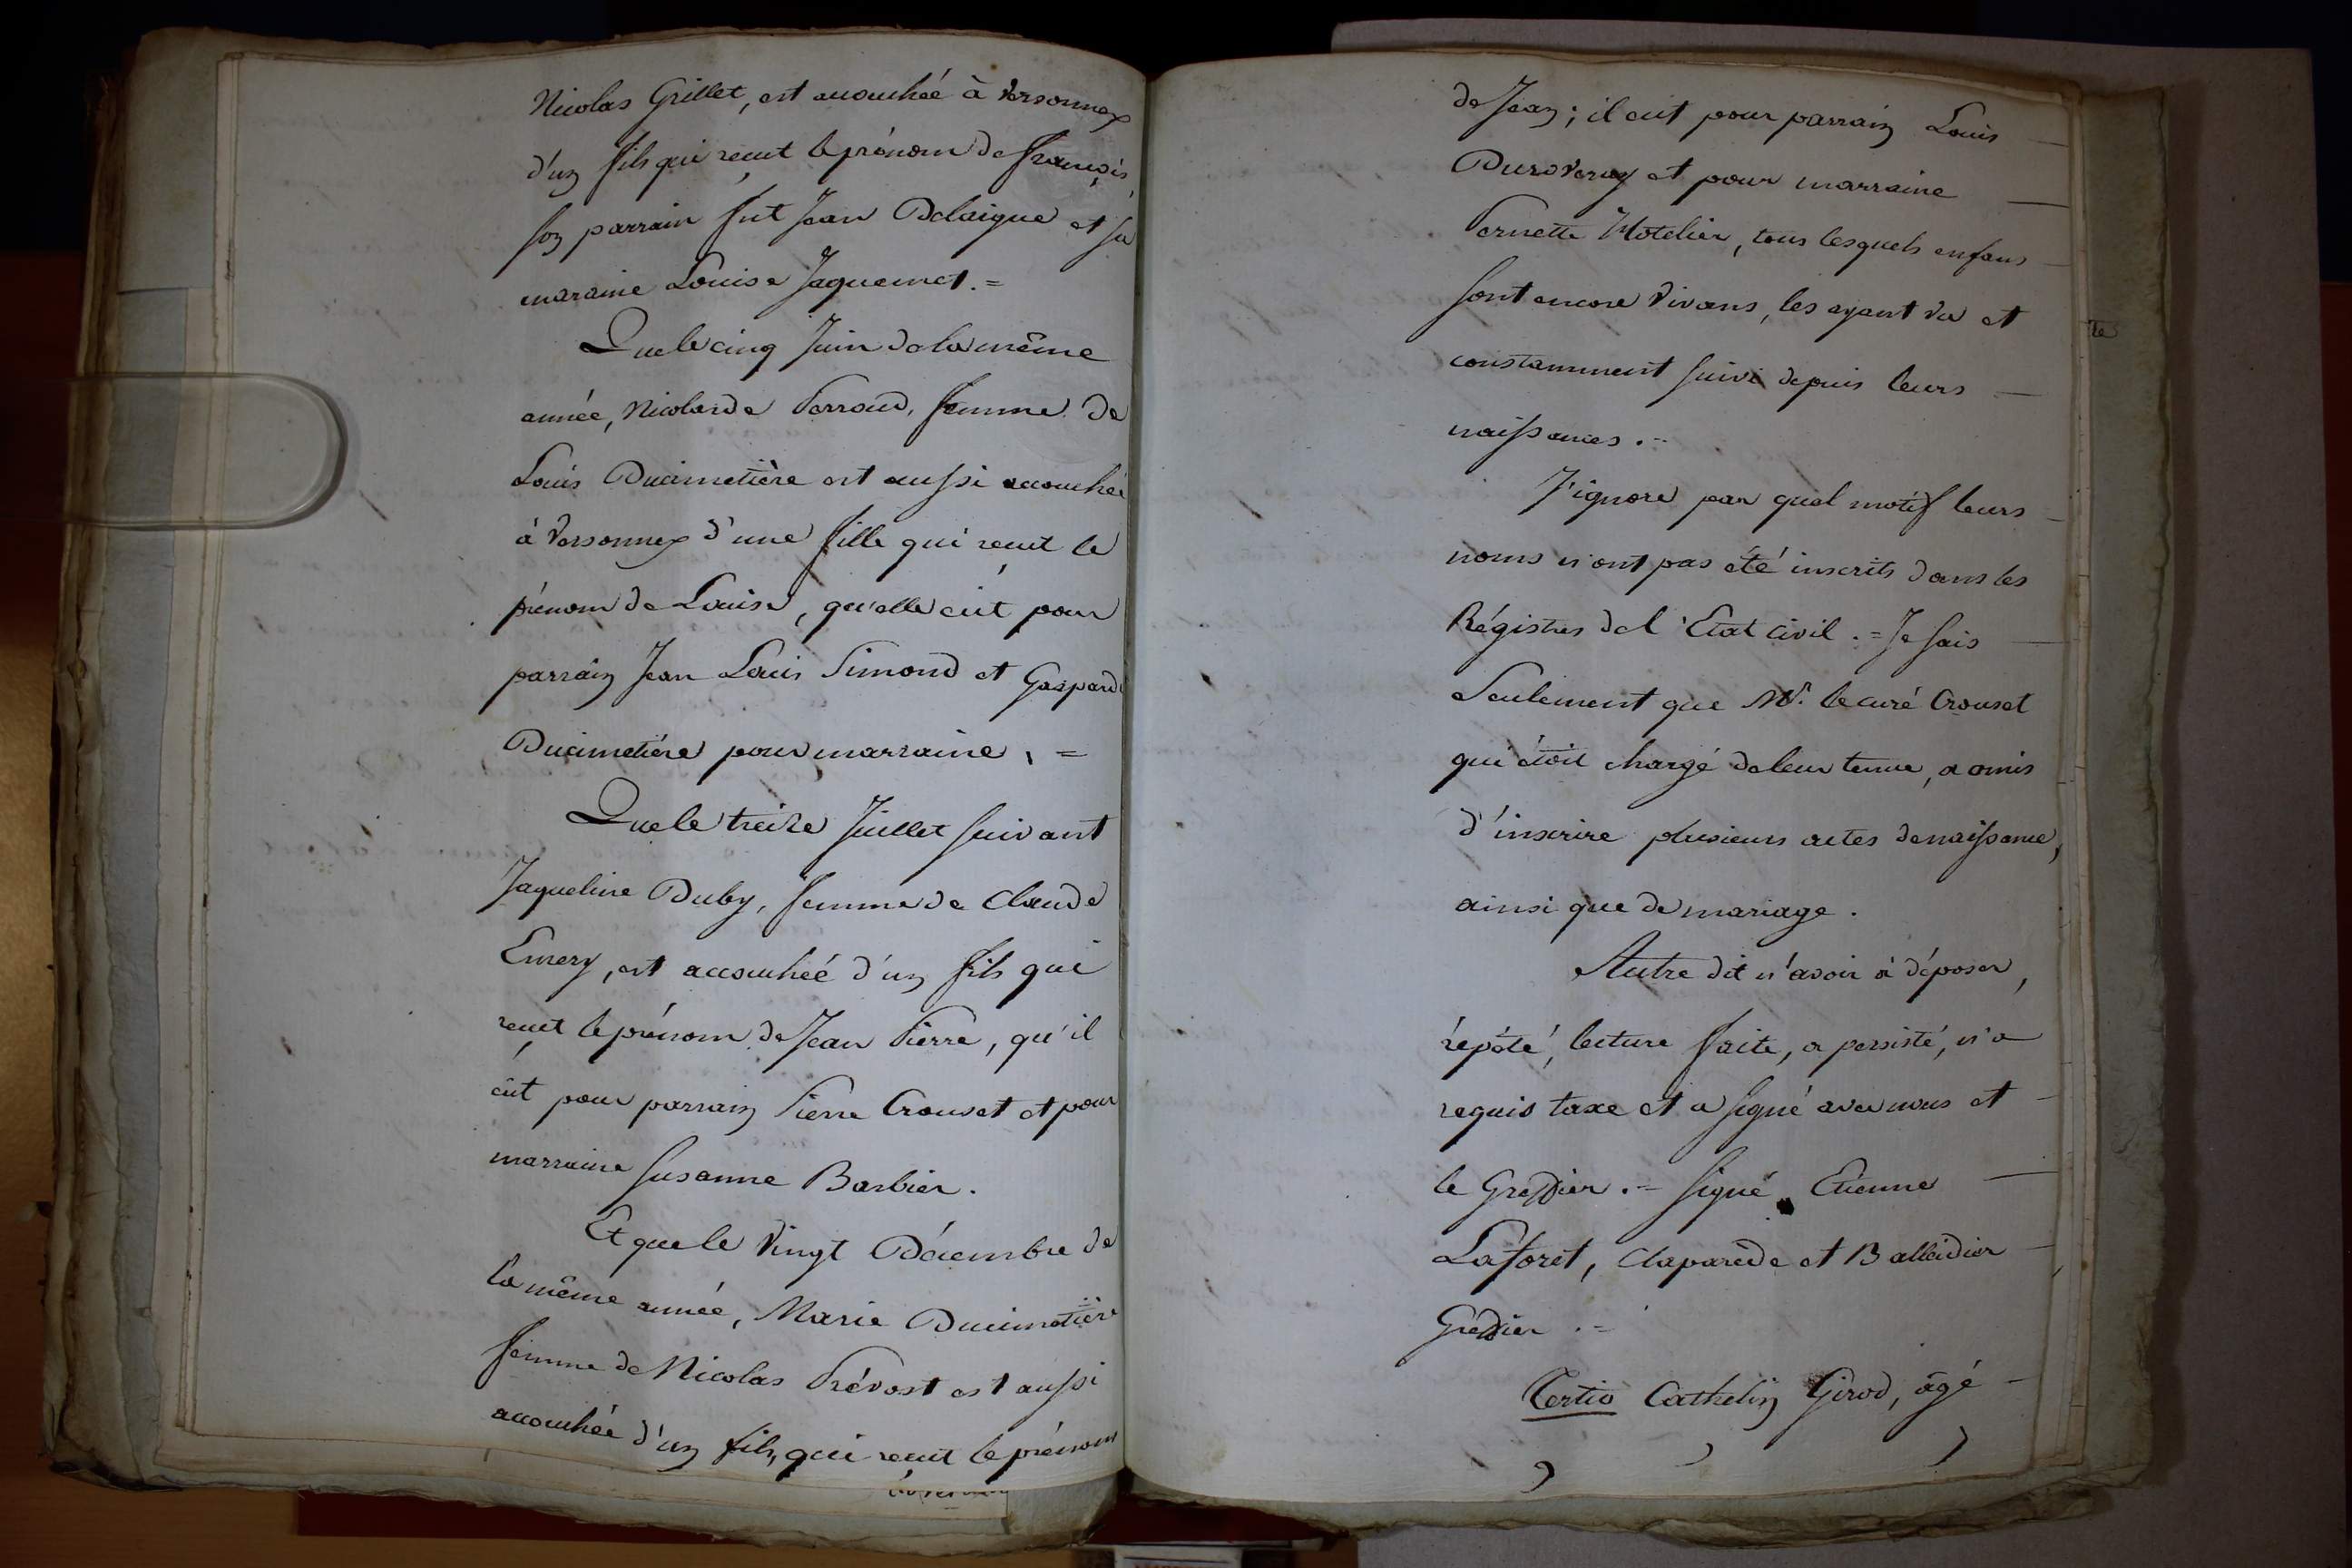 Nicolas Grillet, est accouchée à Versonnex
d'un fils qui reçut le prénom de François,
son parrain fut Jean Delaigue et sa
maraine Louise Jaquemet. =
Que le cinq Juin de la même
année, Nicolarde Perroud, femme de
Louis Ducimetière est aussi accouchée
à Versonnex d'une fille qui reçut le
prénom de Louise, qu'elle eût pour
parrain Jean Louis Simond et Gasparde
Ducimetière pour marraine. =
Que le treize Juillet suivant
Jaqueline Duby, femme de Claude
Emery, est accouchée d'un fils qui
reçut le prénom de Jean Pierre, qu'il
eût pour parrain Pierre Crouset et pour
marraine Susanne Barbier.
Et que le vingt Décembre de
la même année, Marie Ducimetière
femme de Nicolas Prévost est aussi
accouchée d'un fils, qui reçut le prénom
de Jean ; il eut pour parrain Louis
Duroveray et pour marraine
Pernette Hotelier, tous lesquels enfans
sont encore vivans, les ayant vu et
constamment suivi depuis leurs
naissances. =
J'ignore par quel motif leurs
noms n'ont pas été inscrits dans les
Régistres de l'Etat Civil. = Je sais
Seulement que Mr. le curé Crouset
qui étoit chargé de leur tenue, a omis
d'inscrire plusieurs actes de naissance,
ainsi que de mariage.
Autre dit n'avoir à déposer,
répété, lecture faite, a persisté, n'a
requis taxe et a signé avec nous et
le Greffier. = signé Etienne
Laforet, Claparède et Balleidier
Greffier. =
Tertio Cathelin Girod, âgé
te